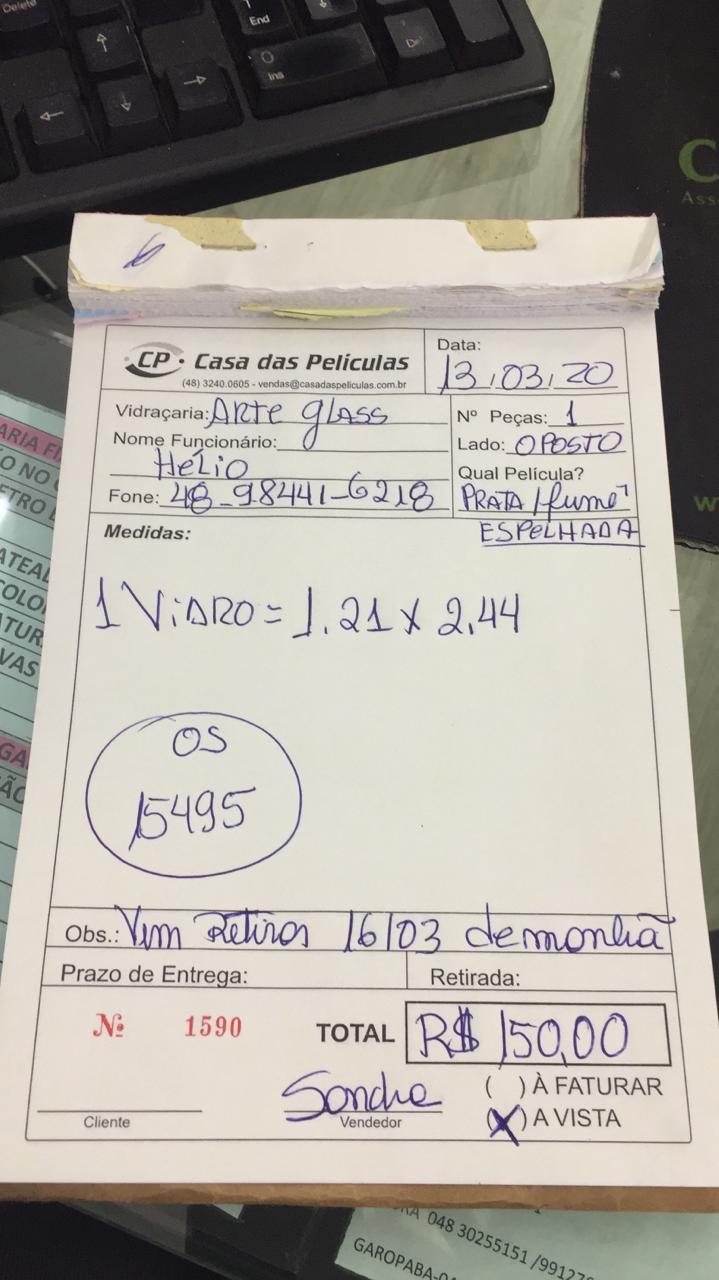 Delete
End
Ins
Del
C
Ass
W
6
CP Casa das Películas
(48) 3240.0605 - vendas@casadaspeliculas.com.br
Data:
13/03/20
Vidraçaria: Arte glass
Nº Peças: 1
Nome Funcionário:
Lado: OPOSTO
HéLio
Qual Película?
Fone: 48-98441-6218
PRATA / fumê
Medidas:
ESPELHADA
1 ViDRO = 1.21 X 2,44
OS
15495
Obs.: Vem Retirar 16/03 de manhã
Prazo de Entrega:
Retirada:
Nº 1590
TOTAL
R$ 150,00
( ) À FATURAR
(X) A VISTA
Cliente
Vendedor
048 30255151 /99127
GAROPABA-